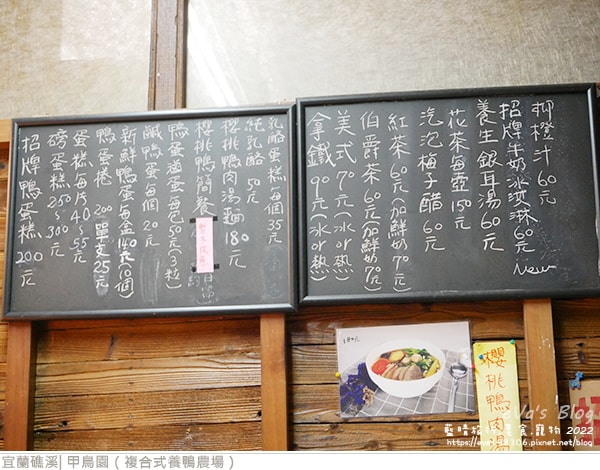 柳橙汁 60元
招牌牛奶冰淇淋 60元 New
養生銀耳湯 60元
花茶每壺 150元
汽泡梅子醋 60元
紅茶 60元(加鮮奶70元)
伯爵茶 60元(加鮮奶70元)
美式 70元(冰or熱)
拿鐵 90元(冰or熱)
乳酪蛋糕每個 35元
純乳酪 50元
櫻桃鴨肉湯麵 180元
櫻桃鴨簡餐
鴨蛋滷蛋每包 50元(3粒)
鹹鴨蛋每個 20元
新鮮鴨蛋每盒 140元(10個)
鴨蛋捲 200 單支 25元
蛋糕每片 40~55元
磅蛋糕 250~300元
招牌鴨蛋糕 200元
180元
櫻桃鴨肉
eVa's Blog
藍晴旅行.美食.寵物 2022
https://eva98306.pixnet.net/blog
宜蘭礁溪| 甲鳥園 ( 複合式養鴨農場 )